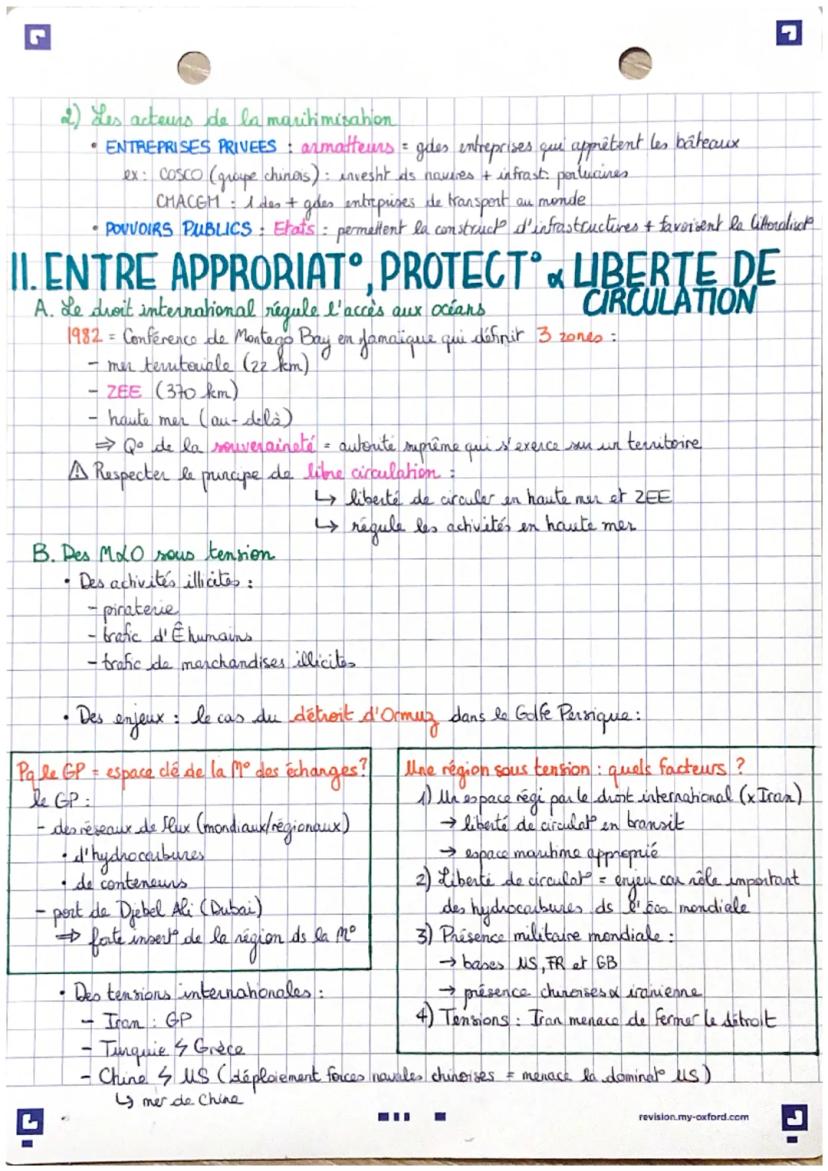 2) Les acteurs de la maritimisation
• ENTREPRISES PRIVEES : armatteurs = gdes entreprises qui apprêtent les bâteaux
ex : COSCO (groupe chinois) : investit ds navires + infrast. portuaires
CMACGM : 1 des + gdes entrepises de transport au monde
• POUVOIRS PUBLICS : Etats : permettent la construct° d'infrastructures + favorisent la littoralisat°
II. ENTRE APPRORIAT°, PROTECT° & LIBERTE DE
CIRCULATION
A. Le droit international régule l'accès aux océans
1982 = Conférence de Montego Bay en Jamaïque qui définit 3 zones :
- mer territoriale (22 km)
- ZEE (370 km)
- haute mer (au-delà)
⇒ Q° de la souveraineté = autorité suprême qui s'exerce sur un territoire
⚠ Respecter le principe de libre circulation :
↳ liberté de circuler en haute mer et ZEE
↳ régule les activités en haute mer
B. Des M&O sous tension
• Des activités illicites :
- piraterie
- trafic d'Ê humains
- trafic de marchandises illicites
• Des enjeux : le cas du détroit d'Ormuz dans le Golfe Persique :
Pq le GP = espace clé de la M° des échanges ?
le GP :
- des réseaux de flux (mondiaux/régionaux)
• d'hydrocarbures
• de conteneurs
- port de Djebel Ali (Dubai)
⇒ forte insert° de la région ds la M°
Une région sous tension : quels facteurs ?
1) Un espace régi par le droit international (x Iran)
→ liberté de circulat° en transit
→ espace maritime approprié
2) Liberté de circulat° = enjeu car rôle important
des hydrocarbures ds l'éco mondiale
3) Présence militaire mondiale :
→ bases US, FR et GB
→ présence chinoises & iranienne
4) Tensions : Iran menace de fermer le détroit
• Des tensions internationales :
- Iran : GP
- Turquie ϟ Grèce
- Chine ϟ US (déploiement forces navales chinoises = menace la dominat° US)
↳ mer de Chine
revision.my-oxford.com